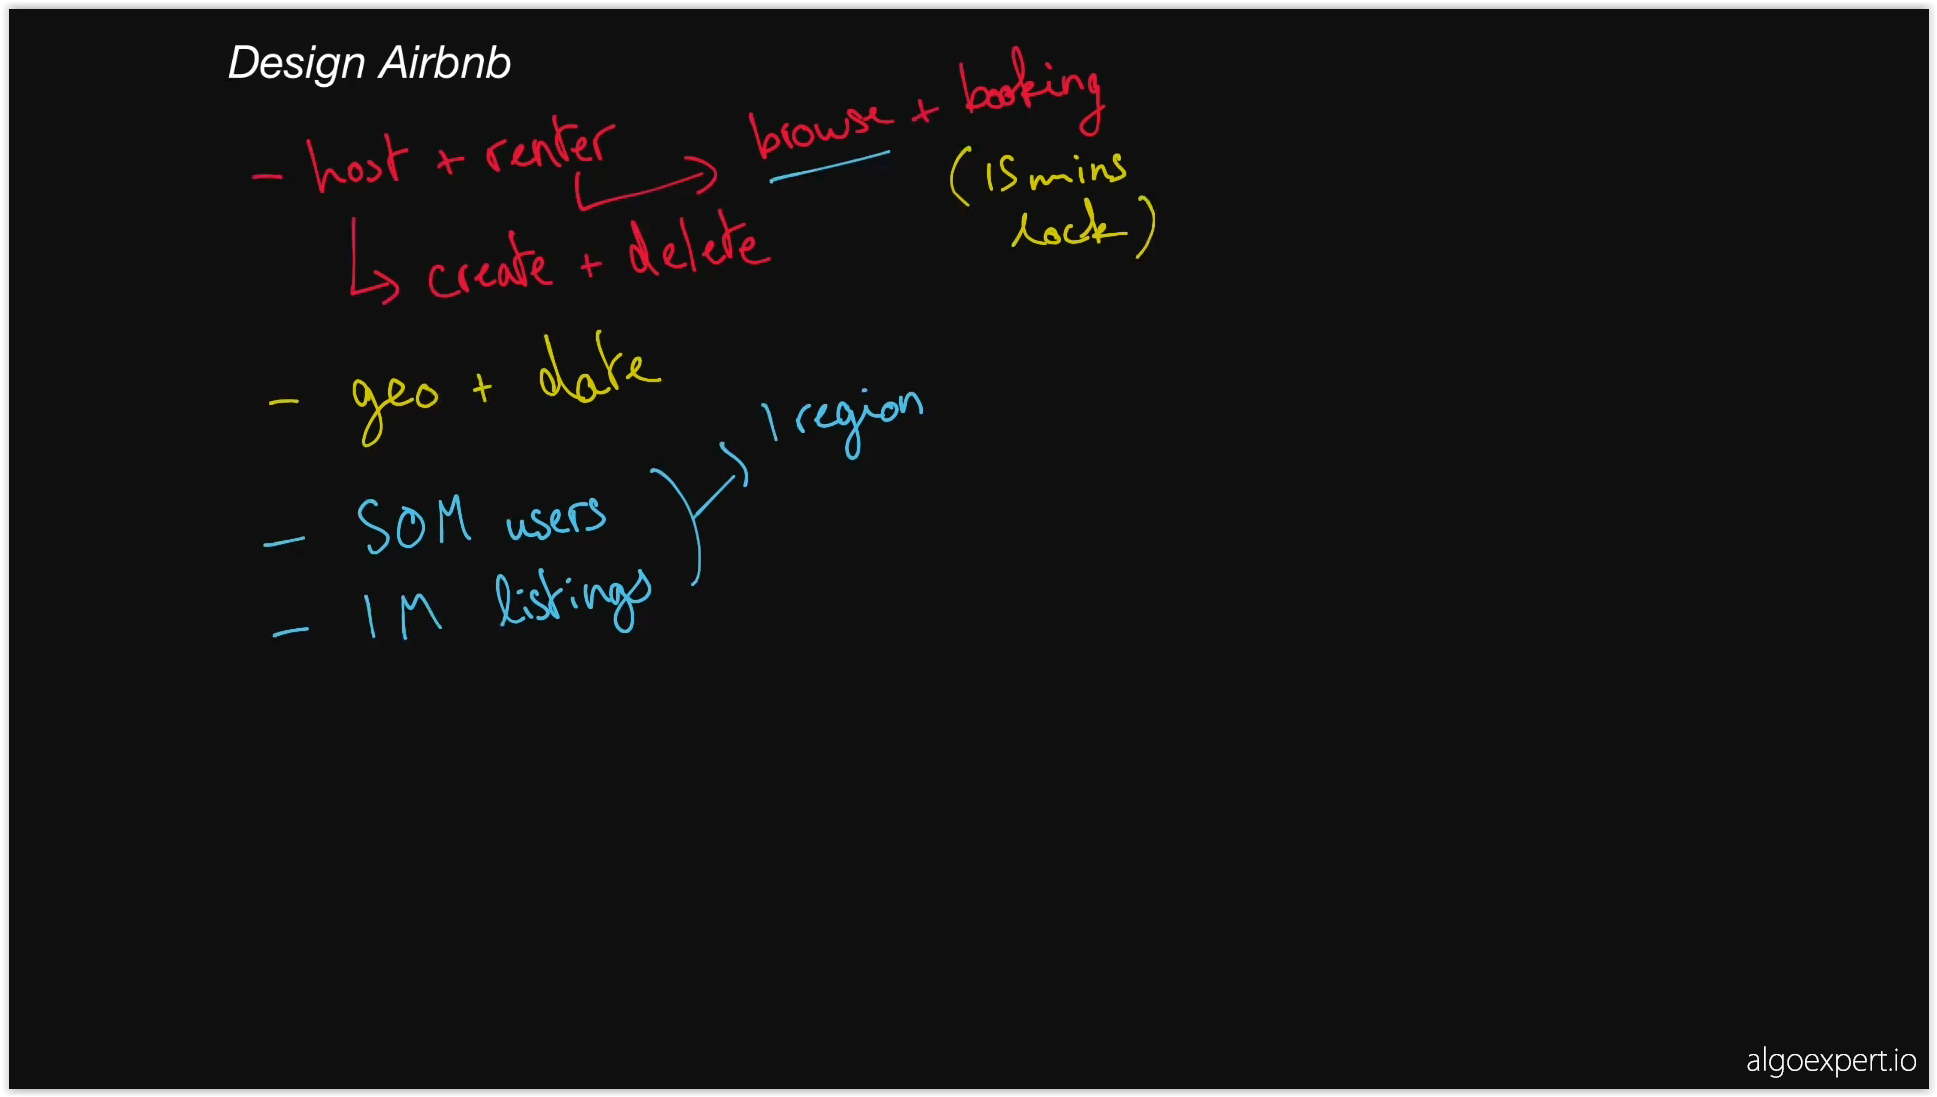 Design Airbnb
- host + renter → browse + booking
(15 mins
lock)
↳ create + delete
- geo + date
1 region
- 50M users
- 1M listings
algoexpert.io